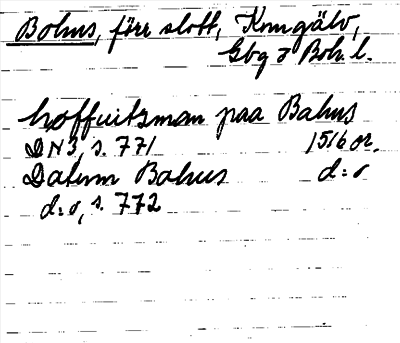 Bohus, förr slott, Kongälv,
Gbg o Boh. l.
høffuitzman paa Bahus
DN 3, s. 771 1516 or.
Datum Bahus d:o
d:o, s. 772